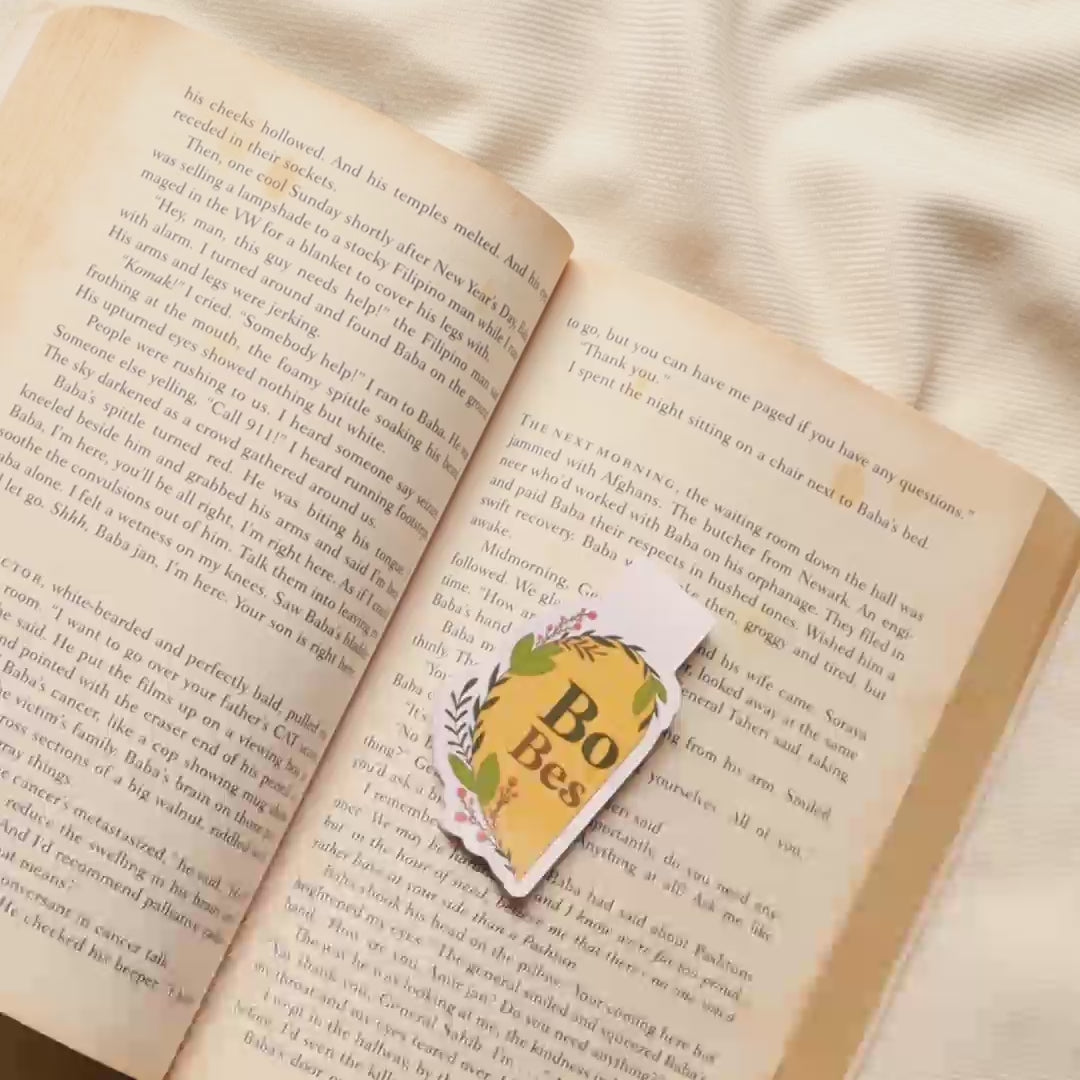 his cheeks hollowed. And his temples melted. And his eyes
receded in their sockets.
Then, one cool Sunday shortly after New Year's Day,
was selling a lampshade to a stocky Filipino man while I
maged in the VW for a blanket to cover his legs with.
"Hey, man, this guy needs help!" the Filipino man
with alarm. I turned around and found Baba on the ground
His arms and legs were jerking.
"Komak!" I cried. "Somebody help!" I ran to Baba. He
frothing at the mouth, the foamy spittle soaking his
His upturned eyes showed nothing but white.
People were rushing to us. I heard someone say
Someone else yelling, "Call 911!" I heard running footsteps.
The sky darkened as a crowd gathered around us.
Baba's spittle turned red. He was biting his tongue.
kneeled beside him and grabbed his arms and said I'm
Baba, I'm here, you'll be all right, I'm right here. As if I
soothe the convulsions out of him. Talk them into leaving
aba alone. I felt a wetness on my knees. Saw Baba's
let go. Shhh, Baba jan, I'm here. Your son is right here.
CTOR, white-bearded and perfectly bald, pulled
room. "I want to go over your father's CAT
he said. He put the films up on a viewing
nd pointed with the eraser end of his
Baba's cancer, like a cop showing mug
e victim's family. Baba's brain on those
ross sections of a big walnut, riddled
gray things.
e cancer's metastasized," he said.
reduce the swelling in his brain
And I'd recommend palliative
at means?"
onversant in cancer talk.
He checked his beeper.
to go, but you can have me paged if you have any questions."
"Thank you."
I spent the night sitting on a chair next to Baba's bed.
THE NEXT MORNING, the waiting room down the hall was
jammed with Afghans. The butcher from Newark. An engi-
neer who'd worked with Baba on his orphanage. They filed in
and paid Baba their respects in hushed tones. Wished him a
swift recovery. Baba then, groggy and tired, but
awake.
Midmorning, and his wife came. Soraya
followed. We looked away at the same
time. "How General Taheri said, taking
Baba's hand
Baba from his arm. Smiled
thinly.
"You yourselves. All of you,
Baba
"It's
"No
thing?" important, do you need any
you'd ask Anything at all? Ask me like
I remember Baba had said about Pashtuns
once. We may be and I know we're far too proud,
but in the hour of need, me that there's no one
rather have at your side than a Pashtun.
Baba shook his head on the pillow. "Your coming here has
brightened my eyes." The general smiled and squeezed Baba's
hand. "How are you, Amir jan? Do you need anything?"
The way he was looking at me, the kindness in
"Nay thank you, General Sahib. I'm
my throat and my eyes teared over.
I wept in the hallway by the
before, I'd seen the
Baba's door
Bo
Bes